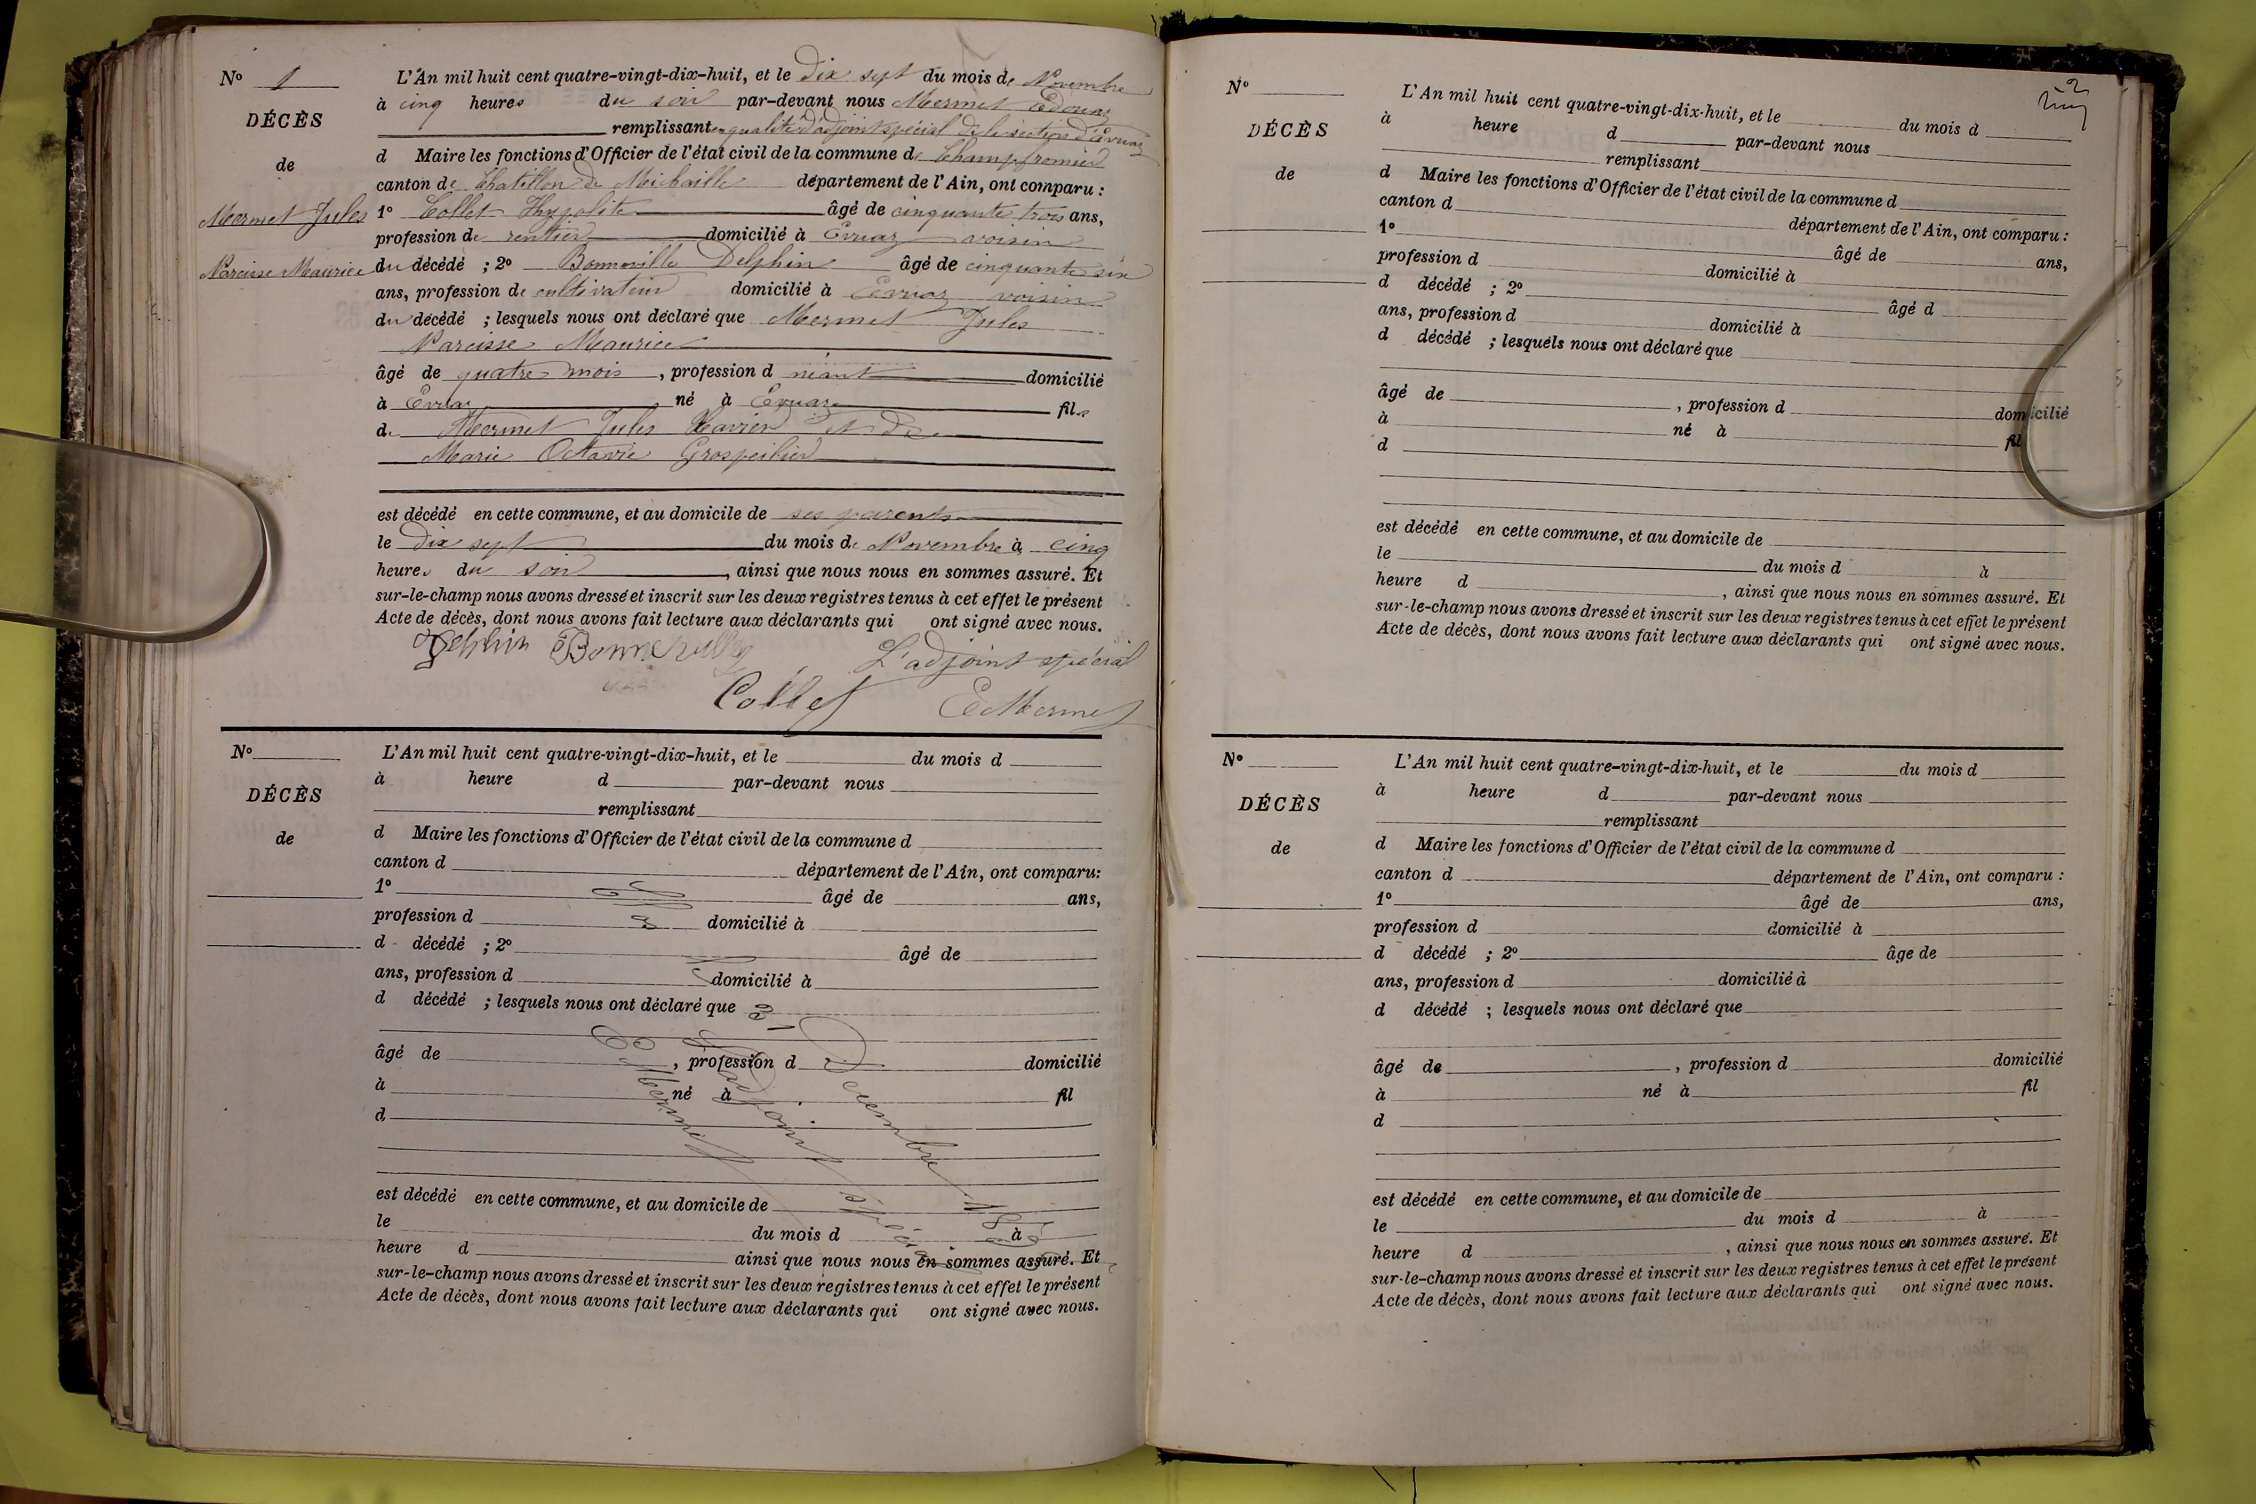 N° 1
DÉCÈS
de
Mermet Jules
Narcisse Maurice
L'An mil huit cent quatre-vingt-dix-huit, et le Dix sept du mois de Novembre
à cinq heures du soir par-devant nous Mermet Edouard
remplissant en qualité d'adjoint spécial de la section d'Evuaz
d Maire les fonctions d'Officier de l'état civil de la commune de Champfromier
canton de Chatillon de Michaille département de l'Ain, ont comparu :
1° Collet Hypolite âgé de cinquante trois ans,
profession de rentier domicilié à Evuaz voisin
du décédé ; 2° Bonneville Delphin âgé de cinquante six
ans, profession de cultivateur domicilié à Evuaz voisin
du décédé ; lesquels nous ont déclaré que Mermet Jules
Narcisse Maurice
âgé de quatre mois, profession d néant domicilié
à Evuaz né à Evuaz fils
de Mermet Jules Xavier et de
Marie Octavie Grospeilier
est décédé en cette commune, et au domicile de ses parents
le Dix sept du mois de Novembre à cinq
heures du soir, ainsi que nous nous en sommes assuré. Et
sur-le-champ nous avons dressé et inscrit sur les deux registres tenus à cet effet le présent
Acte de décès, dont nous avons fait lecture aux déclarants qui ont signé avec nous.
Delphin Bonneville
L'adjoint spécial
Collet E Mermet
N°
DÉCÈS
de
L'An mil huit cent quatre-vingt-dix-huit, et le du mois d
à heure d par-devant nous
remplissant
d Maire les fonctions d'Officier de l'état civil de la commune d
canton d département de l'Ain, ont comparu:
1° âgé de ans,
profession d domicilié à
d décédé ; 2° âgé de
ans, profession d domicilié à
d décédé ; lesquels nous ont déclaré que
âgé de , profession d domicilié
à né à fil
d
est décédé en cette commune, et au domicile de
le du mois d à
heure d ainsi que nous nous en sommes assuré. Et
sur-le-champ nous avons dressé et inscrit sur les deux registres tenus à cet effet le présent
Acte de décès, dont nous avons fait lecture aux déclarants qui ont signé avec nous.
le 31 Décembre 1898
L'adjoint spécial
E Mermet
2
N°
DÉCÈS
de
L'An mil huit cent quatre-vingt-dix-huit, et le du mois d
à heure d par-devant nous
remplissant
d Maire les fonctions d'Officier de l'état civil de la commune d
canton d département de l'Ain, ont comparu :
1° âgé de ans,
profession d domicilié à
d décédé ; 2° âgé d
ans, profession d domicilié à
d décédé ; lesquels nous ont déclaré que
âgé de , profession d domicilié
à né à fil
d
est décédé en cette commune, et au domicile de
le du mois d à
heure d , ainsi que nous nous en sommes assuré. Et
sur-le-champ nous avons dressé et inscrit sur les deux registres tenus à cet effet le présent
Acte de décès, dont nous avons fait lecture aux déclarants qui ont signé avec nous.
N°
DÉCÈS
de
L'An mil huit cent quatre-vingt-dix-huit, et le du mois d
à heure d par-devant nous
remplissant
d Maire les fonctions d'Officier de l'état civil de la commune d
canton d département de l'Ain, ont comparu :
1° âgé de ans,
profession d domicilié à
d décédé ; 2° âge de
ans, profession d domicilié à
d décédé ; lesquels nous ont déclaré que
âgé de , profession d domicilié
à né à fil
d
est décédé en cette commune, et au domicile de
le du mois d à
heure d , ainsi que nous nous en sommes assuré. Et
sur-le-champ nous avons dressé et inscrit sur les deux registres tenus à cet effet le présent
Acte de décès, dont nous avons fait lecture aux déclarants qui ont signé avec nous.